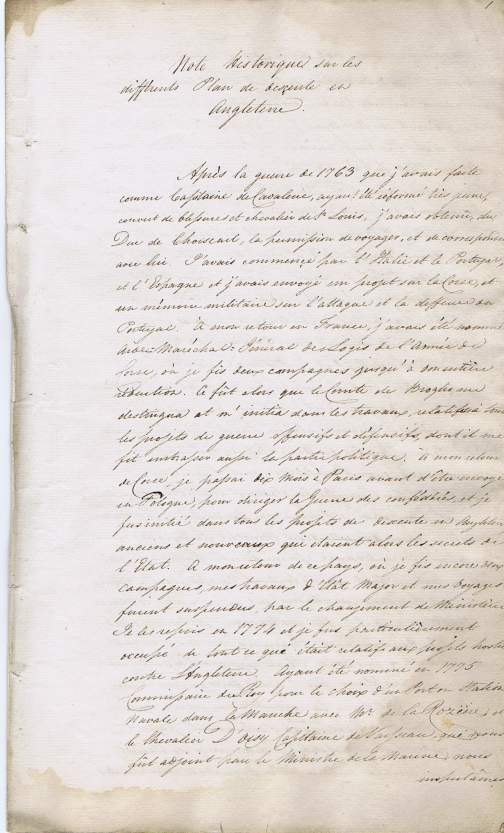 Note Historique sur les
differents Plan de descente en
Angleterre.
Après la guerre de 1763 que j'avais faite
comme Capitaine de Cavalerie, ayant été réformé très jeune,
couvert de blessures et chevalier de St Louis, j'avais obtenu, du
Duc de Choiseul, la permission de voyager, et de correspondre
avec lui J'avais commencé par l'Italie et le Portugal,
et l'Espagne et j'avais envoyé un projet sur la Corse, et
un mémoire militaire sur l'attaque et la deffense du
Portugal. à mon retour en France, j'avais été nommé
Aide-Maréchal-Général des Logis de l'Armée de
Corse, où je fis deux campagnes jusqu'à son entière
réduction. Ce fût alors que le Comte de Broglie me
distingua et m'initia dans les travaux, relatifs à tous
les projets de guerre offensifs et défensifs, dont il me
fit embrasser aussi la partie politique. à mon retour
de Corse, je passai dix mois à Paris avant d'être envoyé
en Pologne, pour diriger la Guerre des confédérés, et je
fus initié dans tous les projets de descente en
anciens et nouveaux qui étaient alors les secrets de
l'Etat. à mon retour de ce pays, où je fis encore deux
campagnes, mes travaux d'Etat Major et mes voyages
furent suspendus, par le changement de Ministère
Je les repris en 1774 et je fus particulièrement
occupé de tout ce qui était relatif aux projets
contre l'Angleterre. Ayant été nommé en 1775
Commissaire du Roi pour le choix d'un Port ou Station
Navale dans la Manche avec Mr. de la Rozière, et
le Chevalier D'oisy Capitaine de Vaisseau, qui nous
fût adjoint par le Ministre de la Marine, nous